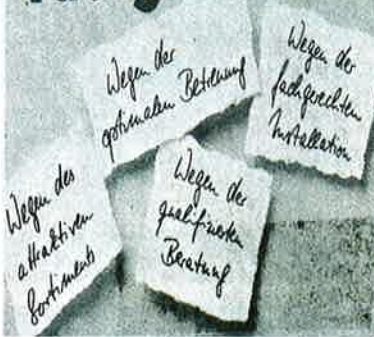 Wegen der
optimalen Betreuung
Wegen der
fachgerechten
Installation
Wegen des
attraktiven
Sortiments
Wegen der
qualifizierten
Beratung